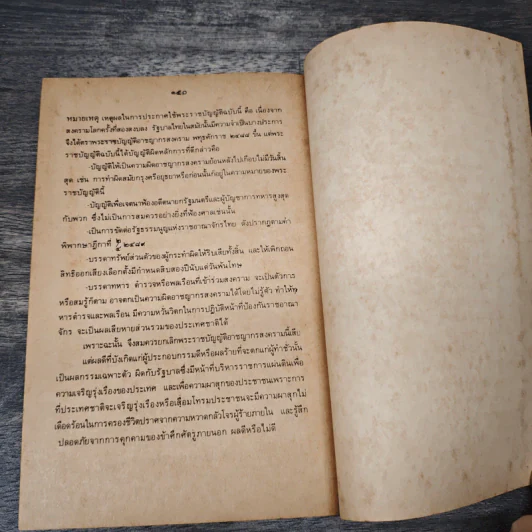 ๑๕๐
หมายเหตุ เหตุผลในการประกาศใช้พระราชบัญญัติฉบับนี้ คือ เนื่องจาก
สงครามโลกครั้งที่สองสงบลง รัฐบาลไทยในสมัยนั้นมีความจำเป็นบางประการ
จึงได้ตราพระราชบัญญัติอาชญากรสงคราม พุทธศักราช ๒๔๘๘ ขึ้น แต่พระ
ราชบัญญัติฉบับนี้ได้บัญญัติผิดหลักการที่ดีกล่าวคือ
-บัญญัติให้เป็นความผิดอาชญากรสงครามย้อนหลังไปเกือบไม่มีวันสิ้น
สุด เช่น การทำผิดสมัยกรุงศรีอยุธยาหรือก่อนนั้นก็อยู่ในความหมายของพระ
ราชบัญญัตินี้
-บัญญัติเพื่อเจตนาฟ้องอดีตนายกรัฐมนตรีและผู้บัญชาการทหารสูงสุด
กับพวก ซึ่งไม่เป็นการสมควรอย่างยิ่งที่ฟ้องศาลเช่นนั้น
-เป็นการขัดต่อรัฐธรรมนูญแห่งราชอาณาจักรไทย ดังปรากฏตามคำ
พิพากษาฎีกาที่ ๒๔๘๙
-บรรดาทรัพย์ส่วนตัวของผู้กระทำผิดให้ริบเสียทั้งสิ้น และให้เพิกถอน
สิทธิออกเสียงเลือกตั้งมีกำหนดสิบสองปีนับแต่วันพ้นโทษ
-บรรดาทหาร ตำรวจหรือพลเรือนที่เข้าร่วมสงคราม จะเป็นตัวการ
หรือสมรู้ก็ตาม อาจตกเป็นความผิดอาชญากรสงครามได้โดยไม่รู้ตัว ทำให้ท
หารตำรวจและพลเรือน มีความหวั่นวิตกในการปฏิบัติหน้าที่ป้องกันราชอาณา
จักร จะเป็นผลเสียหายส่วนรวมของประเทศชาติได้
เพราะฉะนั้น จึงสมควรยกเลิกพระราชบัญญัติอาชญากรสงครามนี้เสีย
แต่ผลดีที่บังเกิดแก่ผู้ประกอบกรรมดีหรือผลร้ายที่จะตกแก่ผู้ทำชั่วนั้น
เป็นผลกรรมเฉพาะตัว ผิดกับรัฐบาลซึ่งมีหน้าที่บริหารราชการแผ่นดินเพื่อ
ความเจริญรุ่งเรืองของประเทศ และเพื่อความผาสุกของประชาชนเพราะการ
ที่ประเทศชาติจะเจริญรุ่งเรืองหรือเสื่อมโทรมประชาชนจะมีความผาสุกไม่
เดือดร้อนในการครองชีวิตปราศจากความหวาดกลัวโจรผู้ร้ายภายใน และรู้สึก
ปลอดภัยจากการคุกคามของข้าศึกศัตรูภายนอก ผลดีหรือไม่ดี